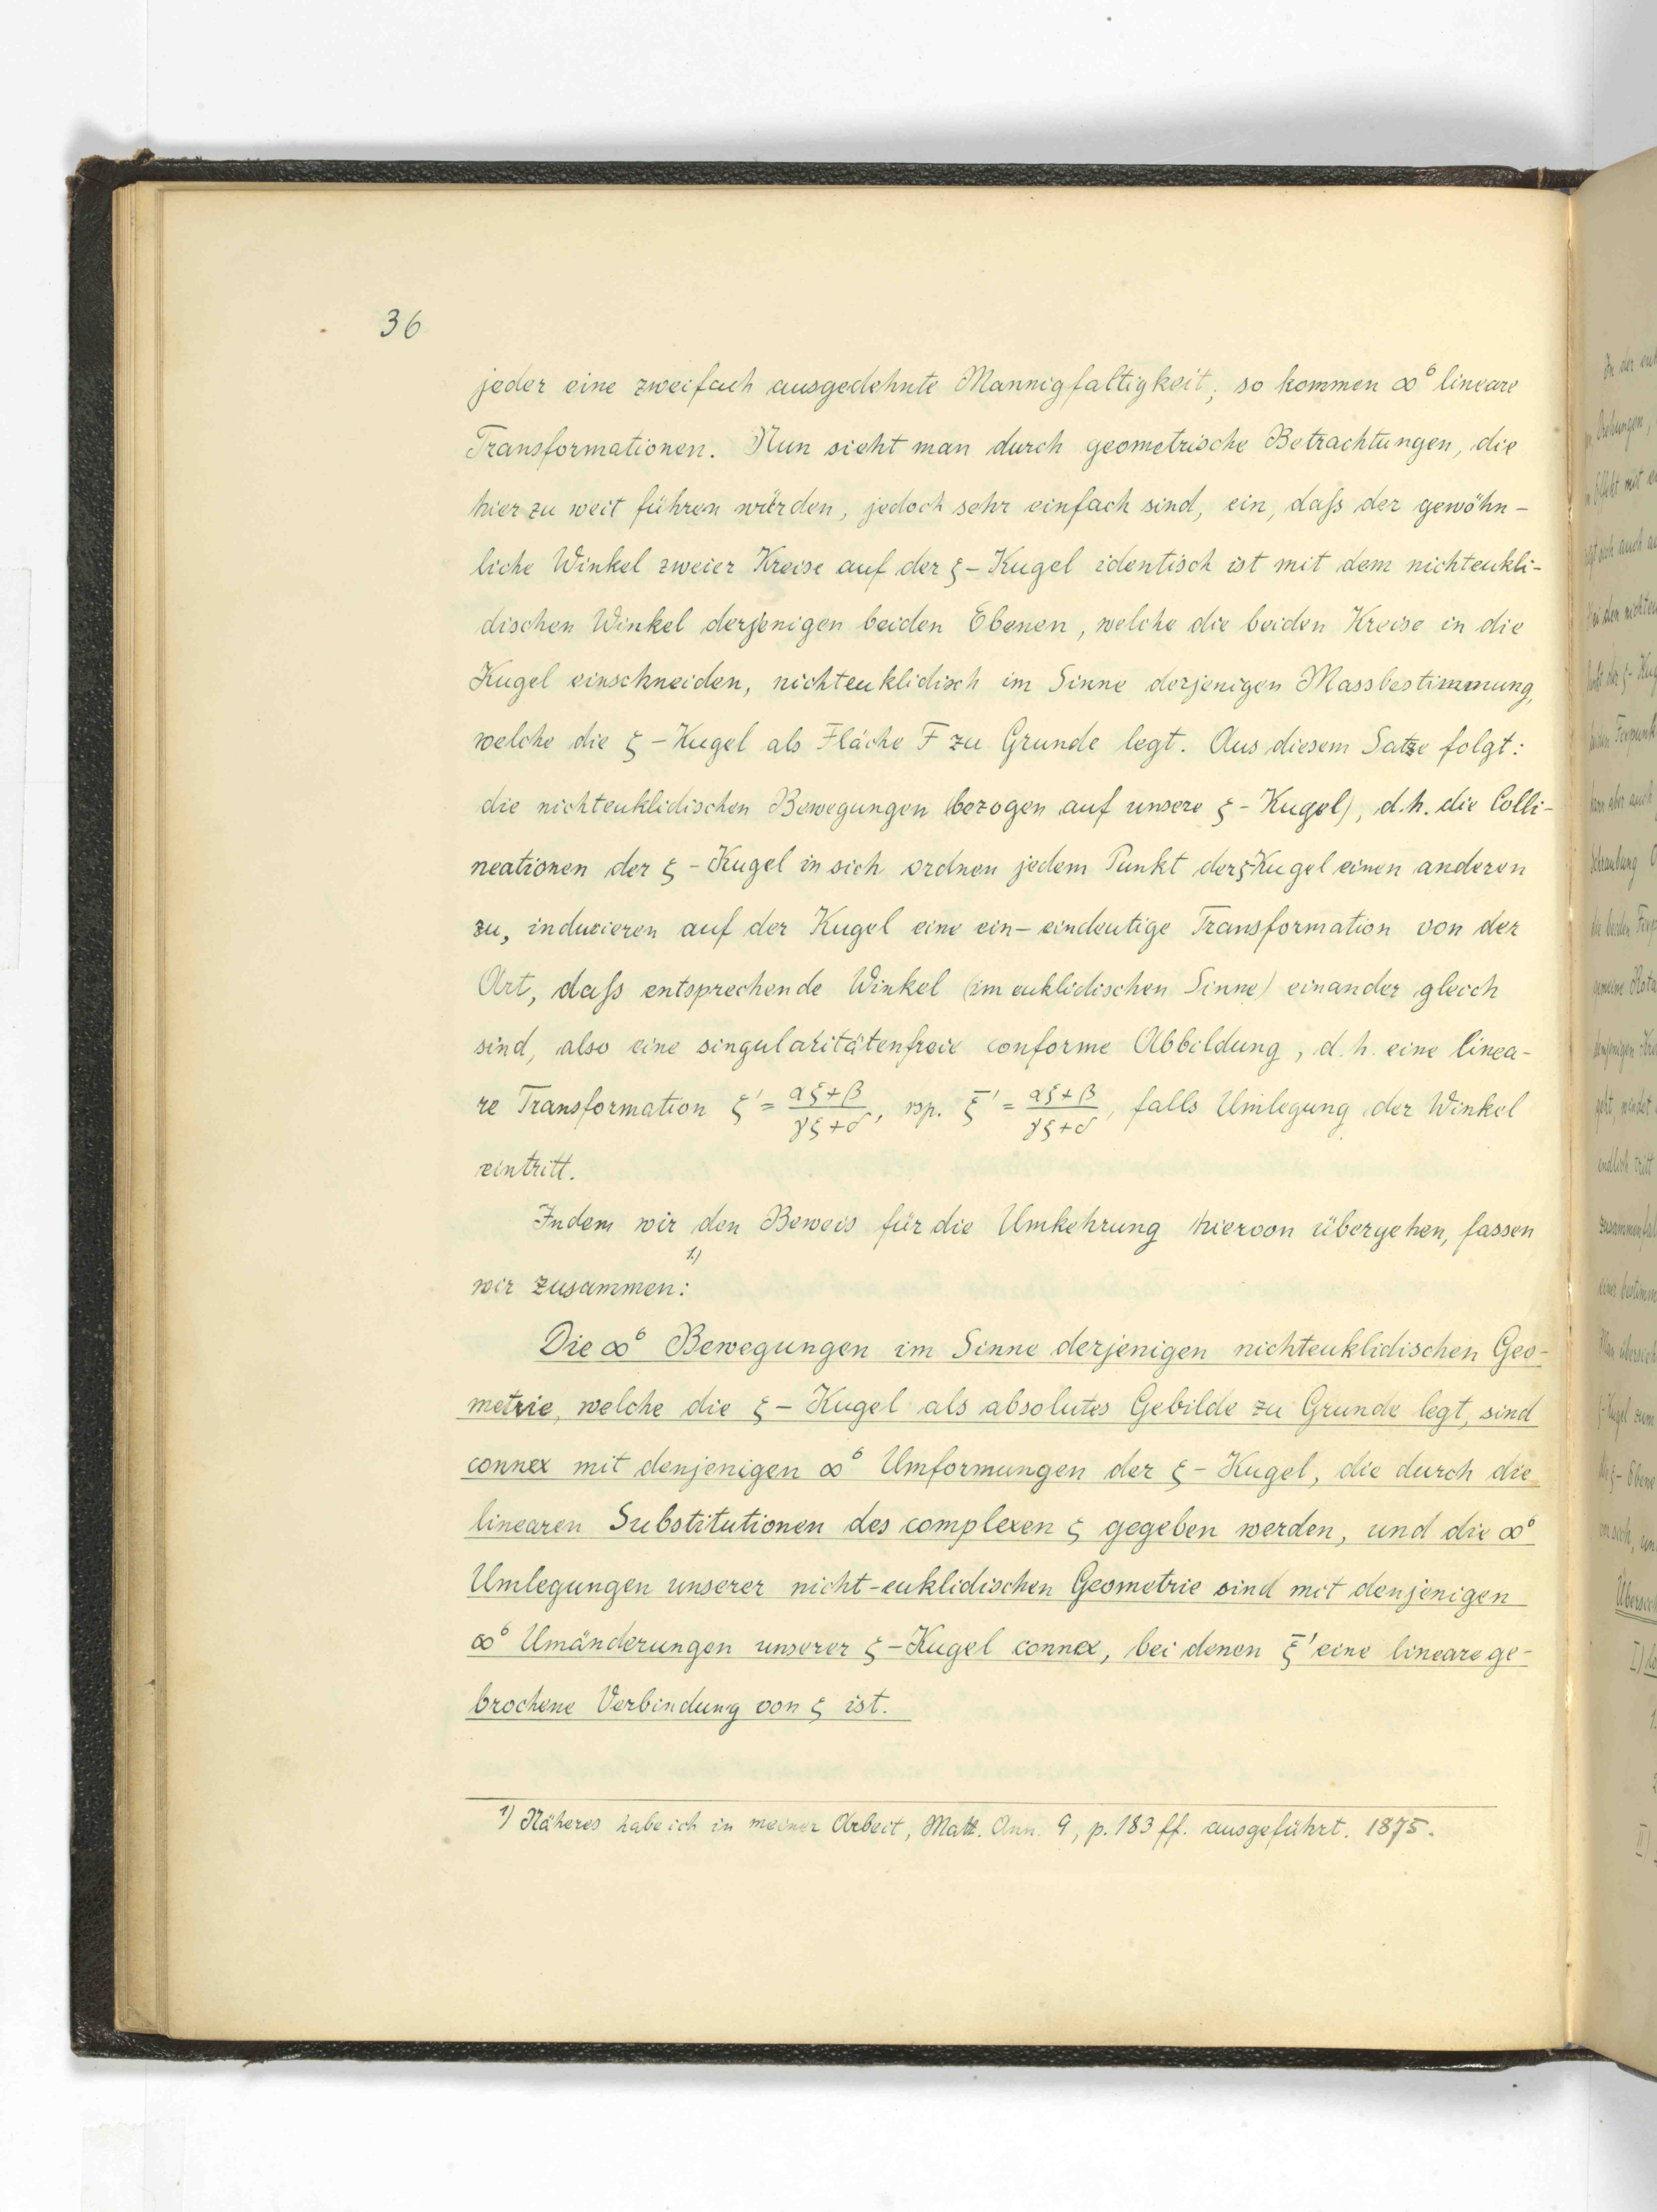 36
jeder eine zweifach ausgedehnte Mannigfaltigkeit; so kommen ∞⁶ lineare
Transformationen. Nun sieht man durch geometrische Betrachtungen, die
hier zu weit führen würden, jedoch sehr einfach sind, ein, daſs der gewöhn-
liche Winkel zweier Kreise auf der ξ-Kugel identisch ist mit dem nichteukli-
dischen Winkel derjenigen beiden Ebenen, welche die beiden Kreise in die
Kugel einschneiden, nichteuklidisch im Sinne derjenigen Massbestimmung,
welche die ξ-Kugel als Fläche F zu Grunde legt. Aus diesem Satze folgt:
die nichteuklidischen Bewegungen (bezogen auf unsere ξ-Kugel), d.h. die Colli-
neationen der ξ-Kugel in sich ordnen jedem Punkt der ξ-Kugel einen anderen
zu, inducieren auf der Kugel eine ein-eindeutige Transformation von der
Art, daſs entsprechende Winkel (im euklidischen Sinne) einander gleich
sind, also eine singularitätenfreie conforme Abbildung, d.h. eine linea-
re Transformation ξ' = (αξ+β)/(γξ+δ), rsp. ξ̄' = (αξ+β)/(γξ+δ), falls Umlegung der Winkel
eintritt.
Indem wir den Beweis für die Umkehrung hiervon übergehen, fassen
wir zusammen: 1)
Die ∞⁶ Bewegungen im Sinne derjenigen nichteuklidischen Geo-
metrie, welche die ξ-Kugel als absolutes Gebilde zu Grunde legt, sind
connex mit denjenigen ∞⁶ Umformungen der ξ-Kugel, die durch die
linearen Substitutionen des complexen ξ gegeben werden, und die ∞⁶
Umlegungen unserer nicht-euklidischen Geometrie sind mit denjenigen
∞⁶ Umänderungen unserer ξ-Kugel connex, bei denen ξ̄' eine lineare ge-
brochene Verbindung von ξ ist.
1) Näheres habe ich in meiner Arbeit, Math. Ann. 9, p. 183 ff. ausgeführt. 1875.